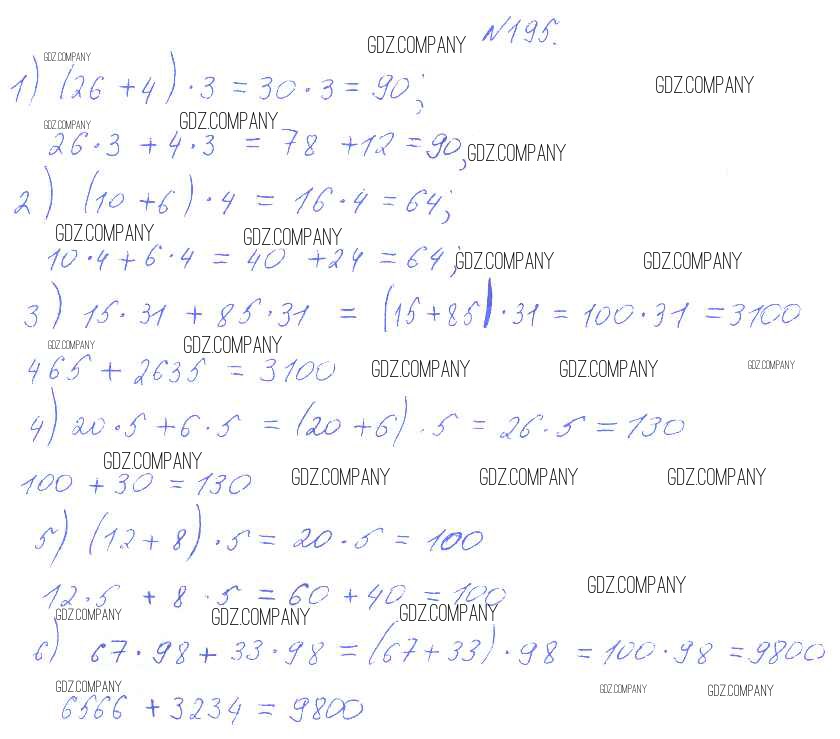 GDZ.COMPANY №195.
GDZ.COMPANY
1) (26 + 4) · 3 = 30 · 3 = 90; GDZ.COMPANY
GDZ.COMPANY GDZ.COMPANY
26 · 3 + 4 · 3 = 78 + 12 = 90, GDZ.COMPANY
2) (10 + 6) · 4 = 16 · 4 = 64;
GDZ.COMPANY GDZ.COMPANY
10 · 4 + 6 · 4 = 40 + 24 = 64; GDZ.COMPANY GDZ.COMPANY
3) 15 · 31 + 85 · 31 = (15 + 85) · 31 = 100 · 31 = 3100
GDZ.COMPANY GDZ.COMPANY
465 + 2635 = 3100 GDZ.COMPANY GDZ.COMPANY GDZ.COMPANY
4) 20 · 5 + 6 · 5 = (20 + 6) · 5 = 26 · 5 = 130
GDZ.COMPANY
100 + 30 = 130 GDZ.COMPANY GDZ.COMPANY GDZ.COMPANY
5) (12 + 8) · 5 = 20 · 5 = 100
12 · 5 + 8 · 5 = 60 + 40 = 100 GDZ.COMPANY
GDZ.COMPANY GDZ.COMPANY GDZ.COMPANY
6) 67 · 98 + 33 · 98 = (67 + 33) · 98 = 100 · 98 = 9800
GDZ.COMPANY GDZ.COMPANY GDZ.COMPANY
6566 + 3234 = 9800